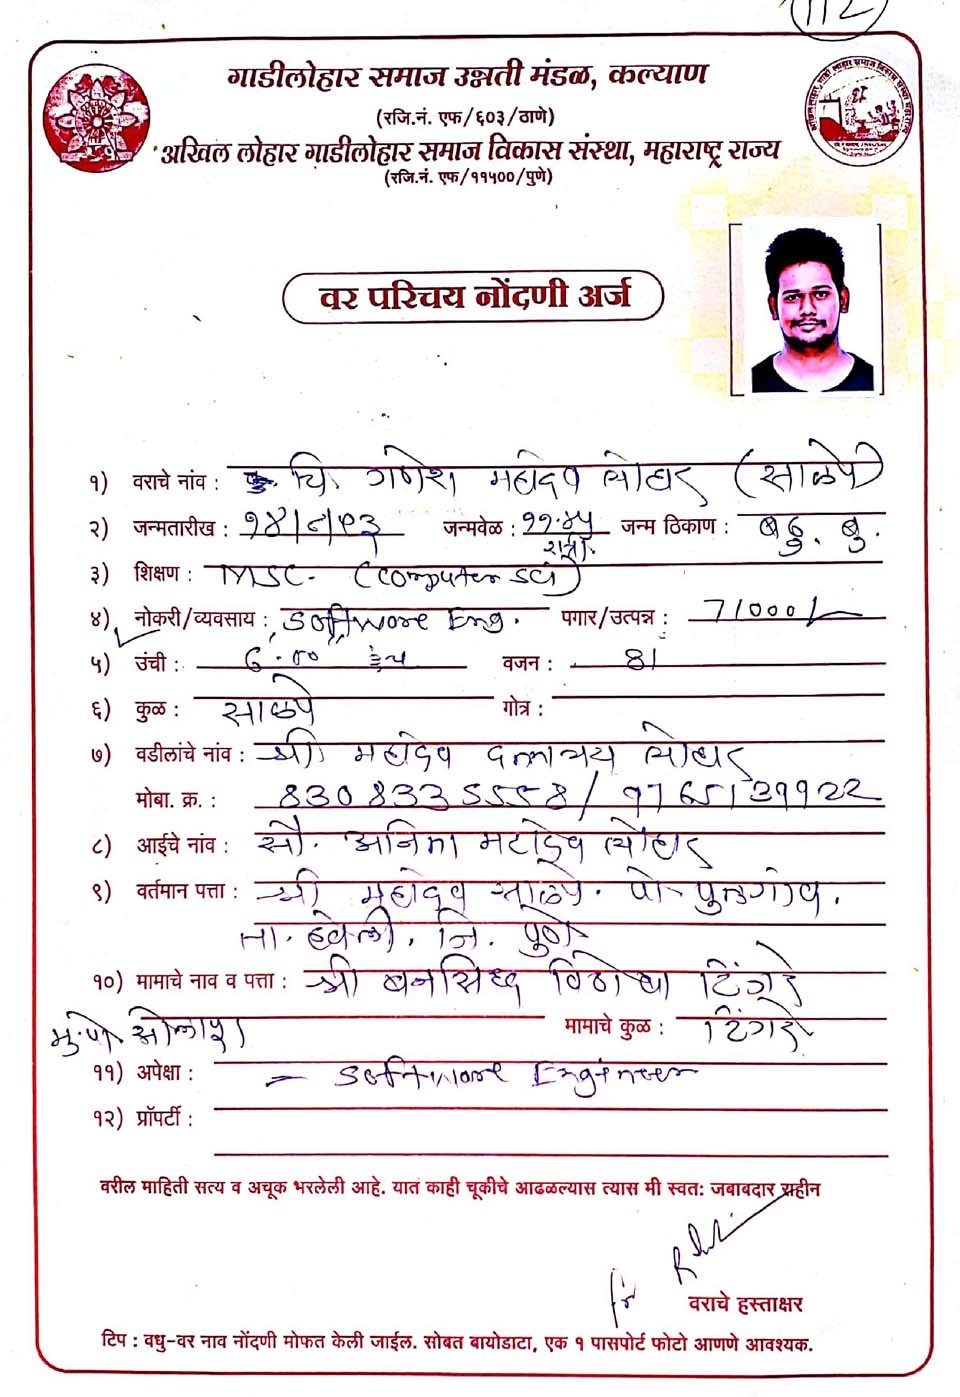 112
गाडीलोहार समाज उन्नती मंडळ, कल्याण
(रजि.नं. एफ/६०३/ठाणे)
अखिल लोहार गाडीलोहार समाज विकास संस्था, महाराष्ट्र राज्य
(रजि.नं. एफ/११५००/पुणे)
वर परिचय नोंदणी अर्ज
१) वराचे नांव : चि. गणेश महादेव लोहार (साळपे)
२) जन्मतारीख : १४/८/९३ जन्मवेळ : ११.४५ रात्री. जन्म ठिकाण : बु.
३) शिक्षण : MSC. (Computer SCi)
४) नोकरी/व्यवसाय : Software Eng. पगार/उत्पन्न : 71000/-
५) उंची : 6.00 इंच वजन : 81
६) कुळ : साळपे गोत्र :
७) वडीलांचे नांव : श्री महादेव दत्तात्रय लोहार
मोबा. क्र. : 8308335558/
८) आईचे नांव : सौ. अनिता महादेव लोहार
९) वर्तमान पत्ता : श्री महादेव साळपे. पो-फुलगांव.
ता. हवेली. जि. पुणे
१०) मामाचे नाव व पत्ता : श्री बनसिध्द विठोबा टिंगरे
मु.पो सोलापुर मामाचे कुळ : टिंगरे
११) अपेक्षा : - Software Engineer
१२) प्रॉपर्टी :
वरील माहिती सत्य व अचूक भरलेली आहे. यात काही चूकीचे आढळल्यास त्यास मी स्वत: जबाबदार राहीन
for
वराचे हस्ताक्षर
टिप : वधु-वर नाव नोंदणी मोफत केली जाईल. सोबत बायोडाटा, एक १ पासपोर्ट फोटो आणणे आवश्यक.